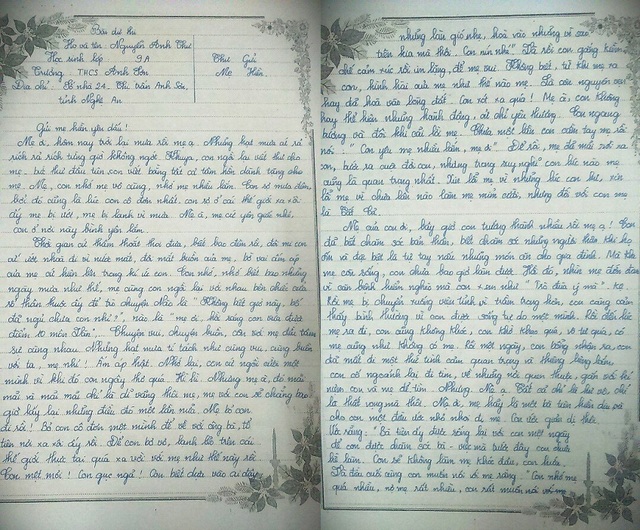 Bài dự thi
Họ và tên: Nguyễn Anh Thư
Học sinh lớp 9A
Trường: THCS Anh Sơn
Địa chỉ: Số nhà 24. Thị trấn Anh Sơn,
tỉnh Nghệ An
Thư Gửi
Mẹ Hiền.
Gửi mẹ hiền yêu dấu!
Mẹ ơi, hôm nay trời lại mưa rồi mẹ ạ. Những hạt mưa cứ rả
rích rả rích từng giờ không ngớt. Khuya, con ngồi lại viết thư cho
mẹ. Bức thư đầu tiên con viết bằng tất cả tâm hồn dành riêng cho
mẹ. Mẹ, con nhớ mẹ vô cùng, nhớ mẹ nhiều lắm. Con sợ mưa đêm,
bởi đó cũng là lúc con cô đơn nhất, con sợ ở cái thế giới xa xôi
ấy mẹ bị ướt, mẹ bị lạnh vì mưa. Mẹ à, mẹ cứ yên giấc nhé,
con ở nơi này bình yên lắm.
Thời gian cứ thấm thoắt thoi đưa, biết bao đêm rồi, đôi mi con
cứ ướt nhoà đi vì nước mắt, đôi mắt buồn của mẹ, bờ vai ấm áp
của mẹ cứ hiện lên trong kí ức con. Con nhớ, nhớ biết bao những
ngày mưa như thế, mẹ cùng con ngồi lại với nhau bên chiếc cửa
sổ thân thuộc ấy để trò chuyện. Chỉ là "Không biết giờ này, bố
đã ngủ chưa con nhỉ?", nào là "mẹ ơi, hồi sáng con vừa được
điểm 10 môn Văn".. Chuyện vui, chuyện buồn, còn với mẹ đều tâm
sự cùng nhau. Những hạt mưa tí tách như cùng vui, cùng buồn
với ta, mẹ nhỉ! Ấm áp thật. Nhớ lại, con cứ ngồi cười một
mình vì khi đó con ngây thơ quá. Hì hì. Nhưng mẹ à, đó mãi
mãi và mãi mãi chỉ là dĩ vãng thôi mẹ, mẹ với con sẽ chẳng bao
giờ lấy lại những điều đó một lần nữa. Mẹ bỏ con
đi rồi! Bỏ con cô đơn một mình để về với ông bà, tổ
tiên nơi xa xôi ấy rồi. Để con bơ vơ, lạnh lẽ trên cái
thế giới thực tại quá xa vời với mẹ như thế này rồi.
Con mệt mỏi! Con gục ngã! Con biết dựa vào ai đây
những làn gió nhẹ, hoà vào những vì sao
trên kia mà thôi. Con nín nhé". Và rồi con gắng kiềm
chế cảm xúc rồi im lặng, để mẹ vui. Không biết, từ khi mẹ xa
con, kính hãi của mẹ như thế nào mẹ. Là còn nguyên vẹn
hay đã hoà vào lòng đất. Con xót xa quá! Mẹ à, con không
hay thể hiện những hành động, cử chỉ yêu thương. Con ngang
bướng và đôi khi cãi lời mẹ. Chưa một lần con cầm tay mẹ rồi
nói: "Con yêu mẹ nhiều lắm, mẹ ơi". Để rồi, mẹ đã mãi rời xa
con, bước ra cuộc đời con, nhưng trong suy nghĩ con lúc nào mẹ
cũng là quan trọng nhất. Xin lỗi mẹ vì những lúc con hư, xin
lỗi mẹ vì chưa lần nào làm mẹ mỉm cười, nhưng đối với con mẹ
là Tất Cả.
Mẹ của con ơi, bây giờ con trưởng thành nhiều rồi mẹ ạ! Con
đã biết chăm sóc bản thân, biết chăm sóc những người thân khi họ
ốm và đặc biệt là tự tay nấu những món ăn cho gia đình. Mà khi
mẹ còn sống, con chưa bao giờ làm được. Hồi đó, nhìn mẹ đớn đau
vì căn bệnh hiểm nghèo mà con
Rồi mẹ bị chuyển xuống viện tỉnh vì trầm trọng hơn, con càng cảm
thấy bình thường vì con được sống tự do một mình. Rồi đến lúc
mẹ ra đi, con cũng không khóc, con khô khan quá, vô tư quá, có
mẹ cũng như không có mẹ. Rồi một ngày, con bỗng nhận ra, con
đã mất đi một thứ tình cảm quan trọng và thiêng liêng lắm,
con cố ngoảnh lại đi tìm, về những nơi quen thuộc, gắn với kỉ
niệm con và mẹ để tìm. Nhưng Mẹ à. Tất cả chỉ là hư vô, chỉ
là thất vọng mà thôi. Mẹ ơi, mẹ hãy là một bà tiên hiền dịu và
cho con một điều ước nhỏ nhoi đi mẹ. Con ước quan đi thôi.
Ước rằng: "Bà tiên ấy được sống lại với con một ngày
để con được chăm sóc bà - điều mà trước đây con chưa
hề làm. Con sẽ không làm mẹ khóc đâu, con hứa.
Và đầu cuối cùng con muốn nói với mẹ rằng: "Con nhớ mẹ
quá nhiều, nợ mẹ rất nhiều, con rất muốn nói với mẹ